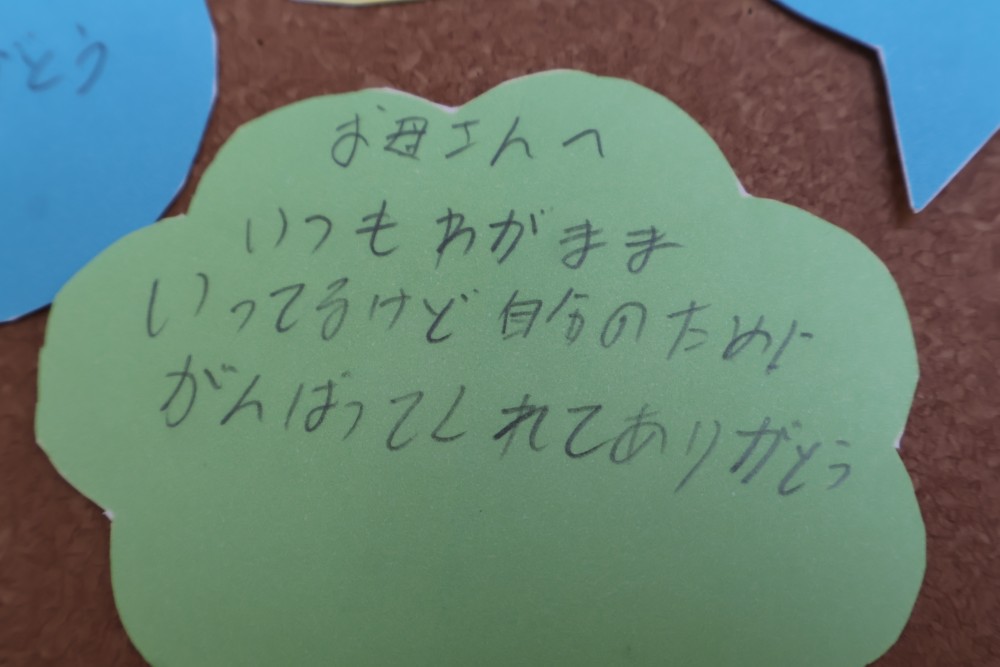 どう
お母さんへ
いつもわがまま
いってるけど自分のために
がんばってくれてありがとう